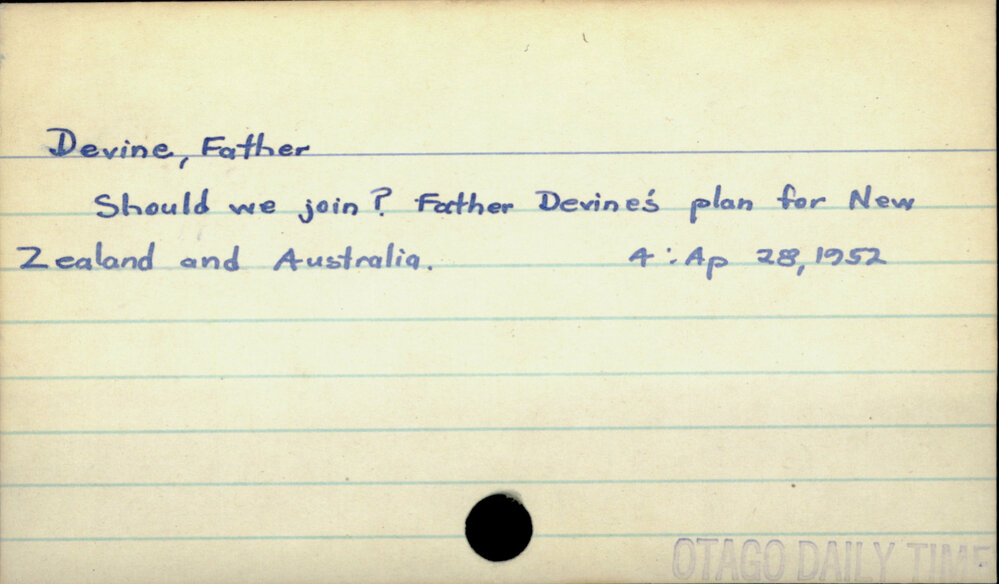 Devine, Father
Should we join? Father Devine's plan for New
Zealand and Australia. 4 : Ap 28, 1952
OTAGO DAILY TIME